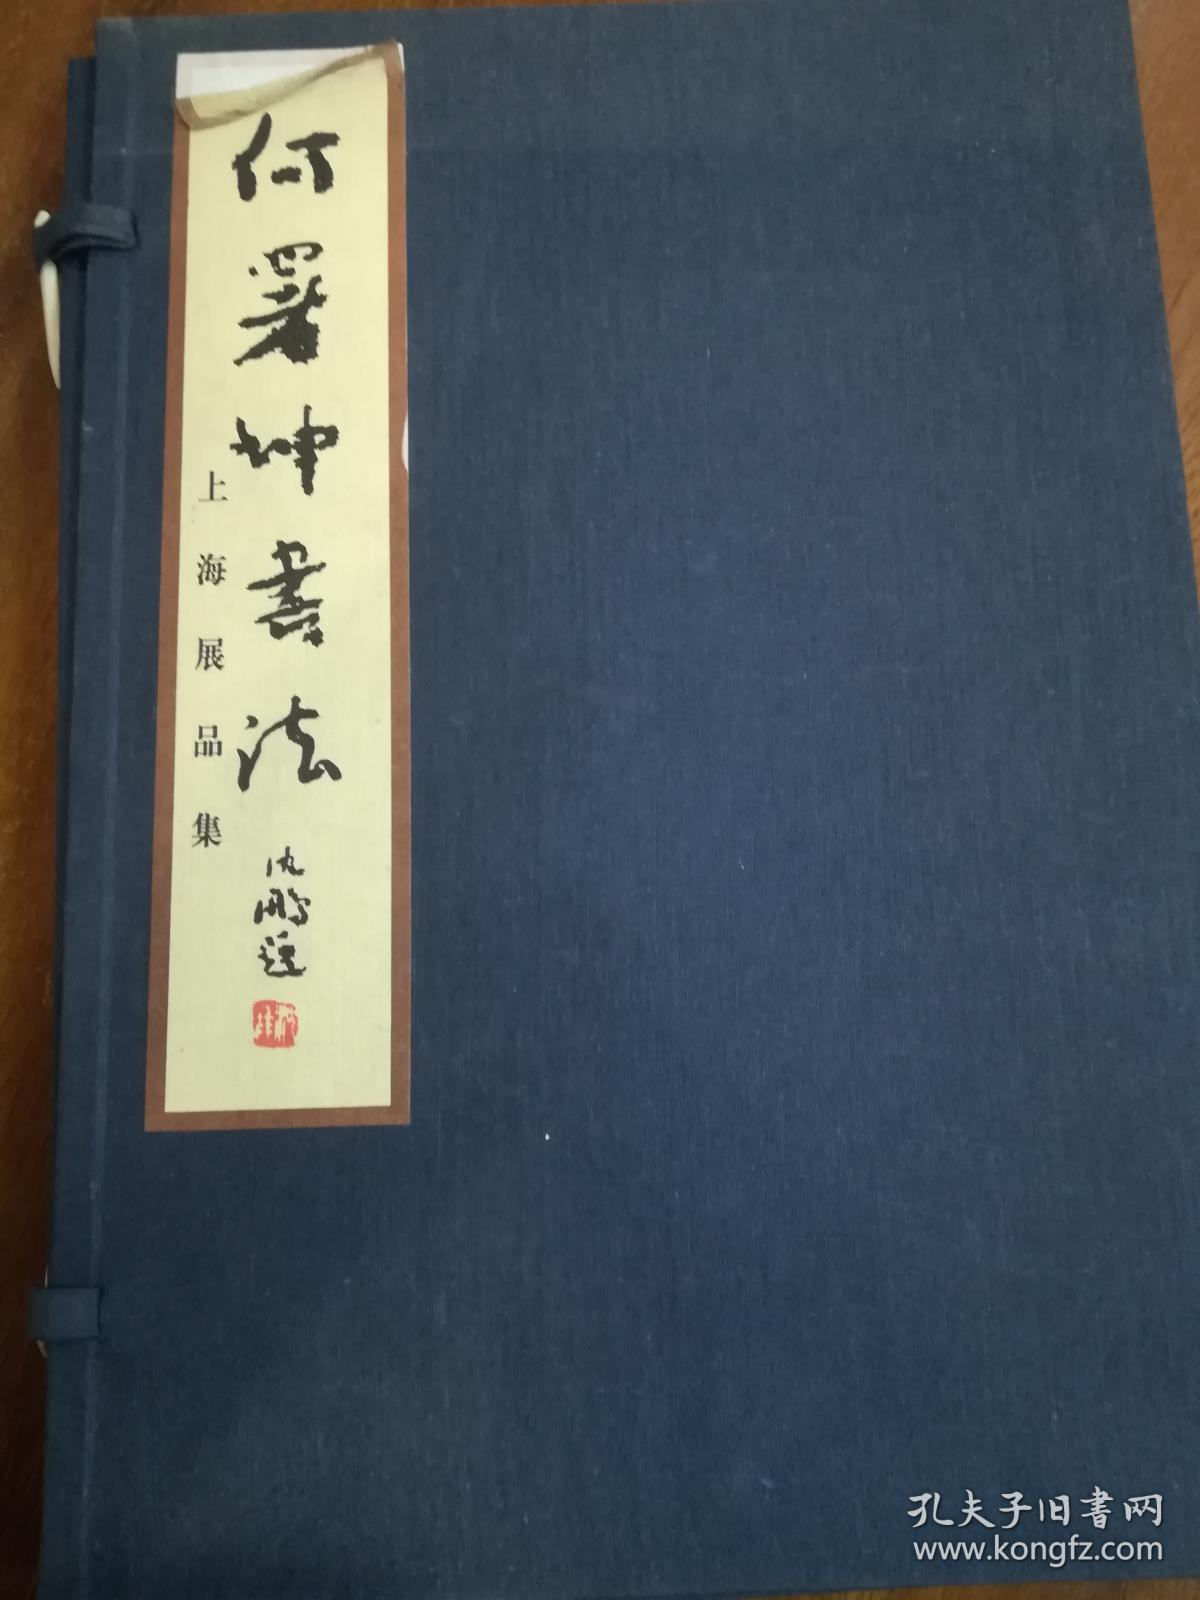 何署坤書法
上海展品集
沈鵬題
孔夫子旧書网
www.kongfz.com